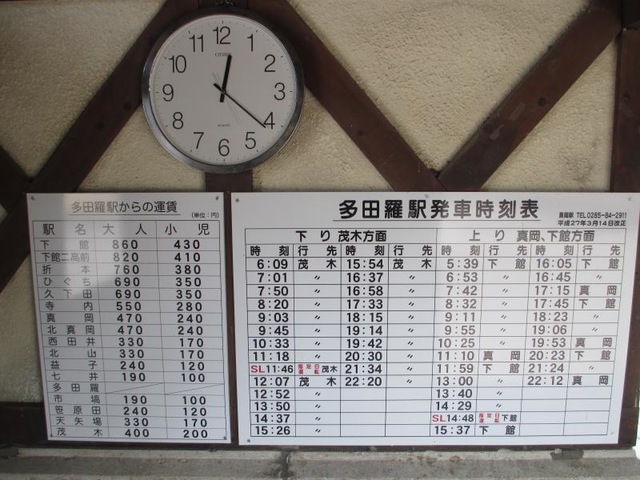 12
1
2
3
4
5
6
7
8
9
10
11
CITIZEN
多田羅駅からの運賃
(単位：円)
駅名 大人 小児
下館 860 430
下館二高前 820 410
折本 760 380
ひぐち 690 350
久下田 690 350
寺内 550 280
真岡 470 240
北真岡 470 240
西田井 330 170
北山 330 170
益子 240 120
七井 190 100
多田羅
市塙 190 100
笹原田 240 120
天矢場 330 170
茂木 400 200
多田羅駅発車時刻表
真岡駅 TEL.0285-84-2911
平成27年3月14日改正
下り 茂木方面 上り 真岡、下館方面
時刻 行先 時刻 行先 時刻 行先 時刻 行先
6:09 茂木 15:54 茂木 5:39 下館 16:05 下館
7:01 〃 16:37 〃 6:53 〃 16:45 〃
7:50 〃 16:58 〃 7:42 〃 17:15 真岡
8:20 〃 17:33 〃 8:32 〃 17:45 下館
9:03 〃 18:15 〃 9:11 〃 18:23 〃
9:45 〃 19:14 〃 9:55 〃 19:06 〃
10:33 〃 19:42 〃 10:25 〃 19:53 真岡
11:18 〃 20:30 〃 11:10 真岡 20:23 下館
SL11:46 指定日運転 茂木 21:34 〃 11:59 下館 21:24 〃
12:07 茂木 22:20 〃 13:00 〃 22:12 真岡
12:52 〃 13:40 〃
13:50 〃 14:29 〃
14:37 〃 SL14:48 指定日運転 下館
15:26 〃 15:37 下館